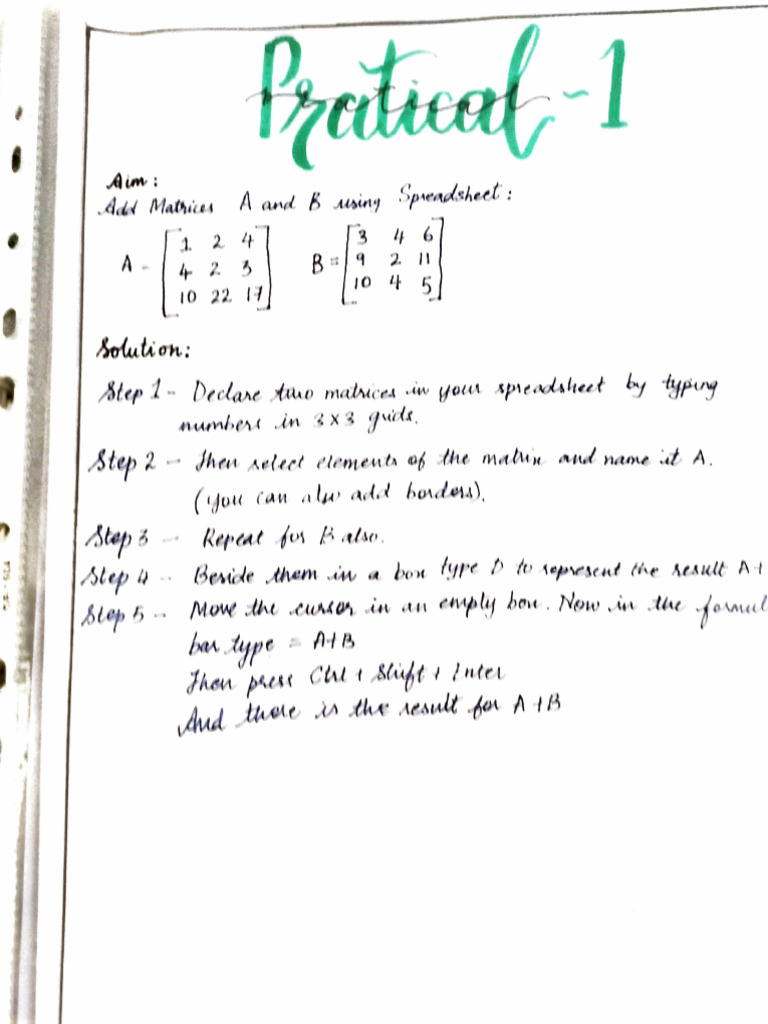 Pratical-1
Aim:
Add Matrices A and B using Spreadsheet:
A - [1 2 4 B = [3 4 6
4 2 3 9 2 11
10 22 17] 10 4 5]
Solution:
Step 1 - Declare two matrices in your spreadsheet by typing
numbers in 3x3 grids.
Step 2 - Then select elements of the matrix and name it A.
(you can also add borders).
Step 3 - Repeat for B also.
Step 4 - Beside them in a box type D to represent the result A+
Step 5 - Move the cursor in an empty box. Now in the formul
bar type = A+B
Then press Ctrl + Shift + Enter
And there is the result for A+B